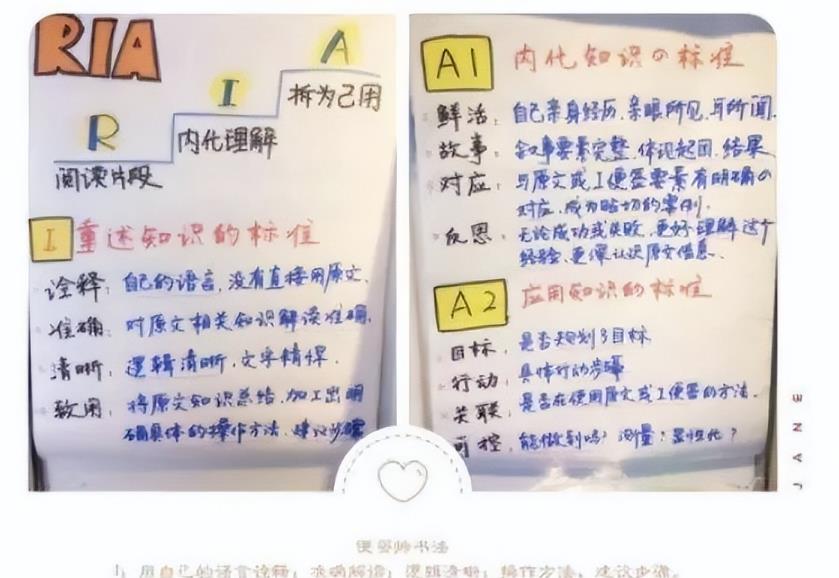 RIA
A
拆为己用
I
内化理解
R
阅读片段
I 重述知识的标准
诠释：自己的语言，没有直接用原文，
准确：对原文相关知识解读准确，
清晰：逻辑清晰，文字精悍，
致用：将原文知识总结，加工出明
确具体的操作方法，建议步骤
A1 内化知识の标准
鲜活：自己亲身经历，亲眼所见，耳所闻，
故事：叙事要素完整，体现起因，结果
对应：与原文或I便签要素有明确の
对应，成为贴切的案例，
反思：无论成功或失败，更好理解这个
经验，更深认识原文信息，
A2 应用知识的标准
目标，是否规划了目标
行动，具体行动步骤
关联，是否在使用原文或I便签的方法，
可控，能做到吗？测量？显性化？
JANE
便签the书法
1、用自己的语言诠释；准确解读；逻辑清晰；操作方法，建议步骤。